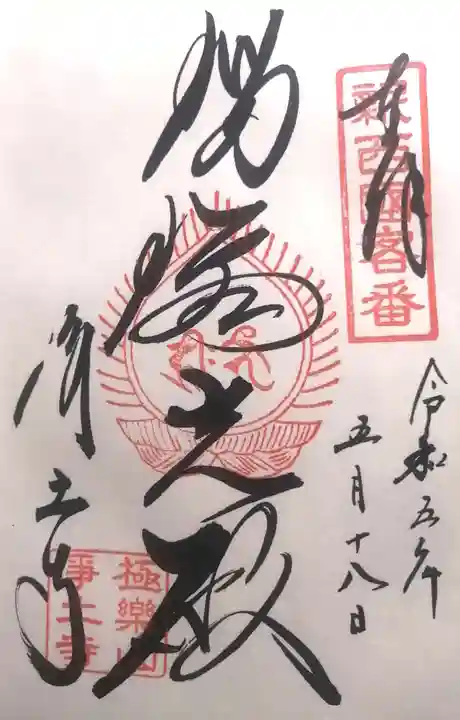 奉拝
新西國客番
令和五年
五月十八日
瑠璃光殿
浄土寺
極樂山
淨土寺